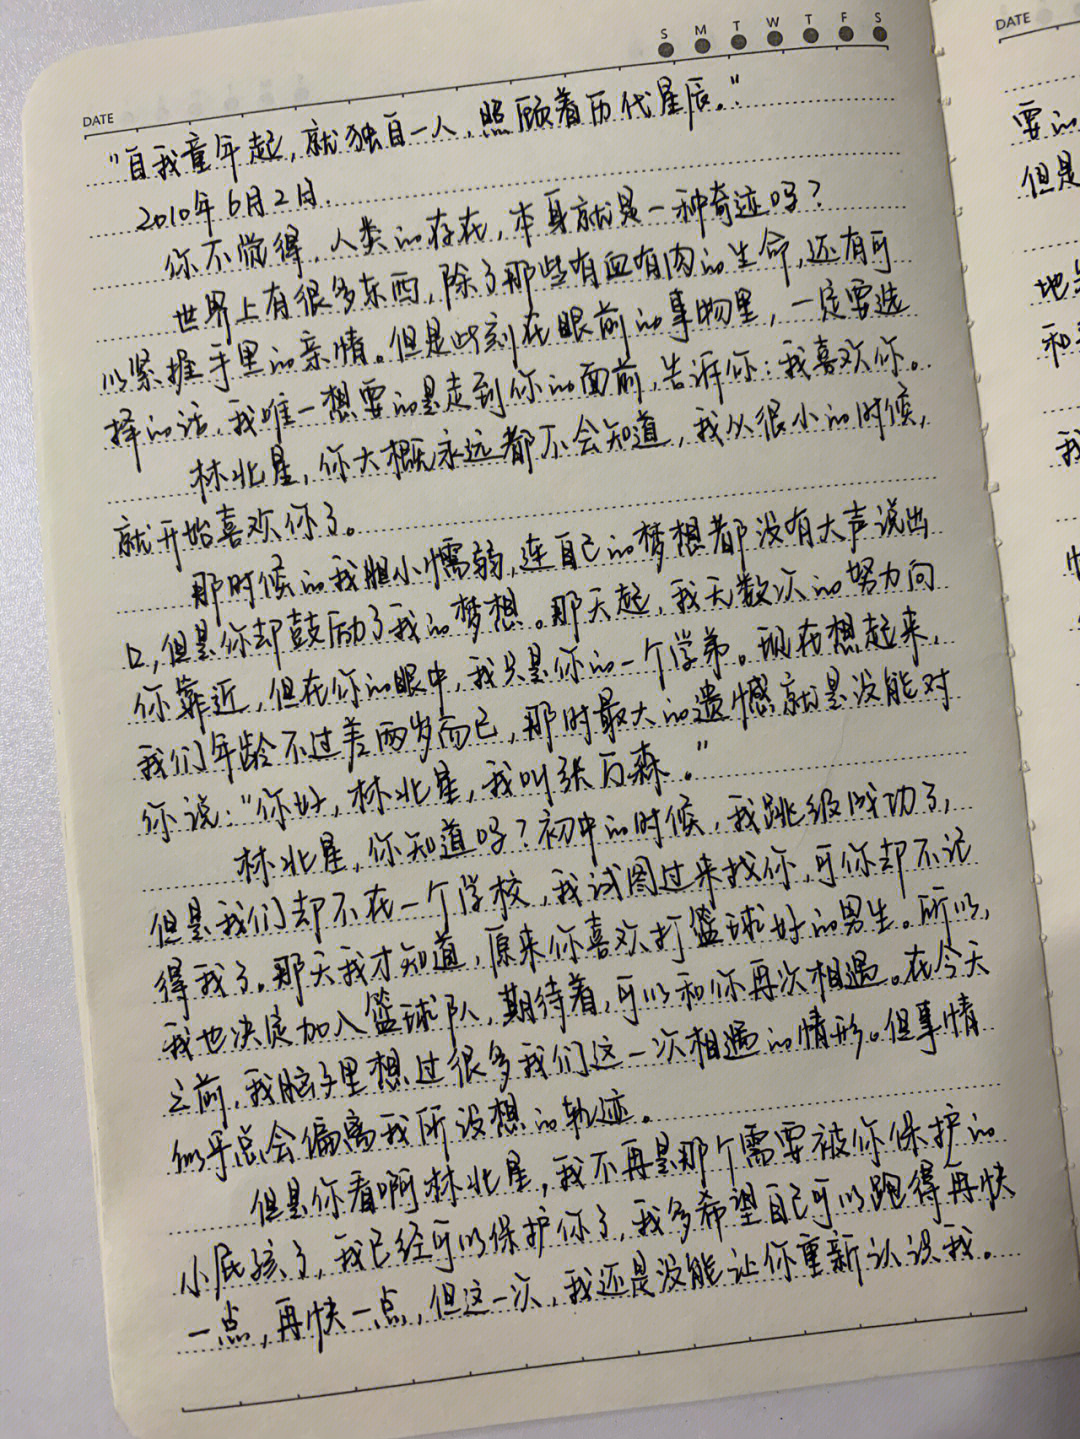 S M T W T F S
DATE
"自我童年起，就独自一人，照顾着历代星辰。"
2010年6月2日.
你不觉得，人类的存在，本身就是一种奇迹吗？
世界上有很多东西，除了那些有血有肉的生命，还有可
以紧握手里的亲情。但是此刻在眼前的事物里，一定要选
择的话，我唯一想要的是走到你的面前，告诉你：我喜欢你。
林北星，你大概永远都不会知道，我从很小的时候，
就开始喜欢你了。
那时候的我胆小懦弱，连自己的梦想都没有大声说出
口，但是你却鼓励了我的梦想。那天起，我无数次的努力向
你靠近，但在你的眼中，我只是你的一个学弟。现在想起来，
我们年龄不过差两岁而已，那时最大的遗憾就是没能对
你说："你好，林北星，我叫张万森。"
林北星，你知道吗？初中的时候，我跳级成功了，
但是我们却不在一个学校，我试图过来找你，可你却不记
得我了。那天我才知道，原来你喜欢打篮球好的男生。所以，
我也决定加入篮球队，期待着，可以和你再次相遇。在今天
之前，我脑子里想过很多我们这一次相遇的情形。但事情
似乎总会偏离我所设想的轨迹。
但是你看啊林北星，我不再是那个需要被你保护的
小屁孩了，我已经可以保护你了，我多希望自己可以跑得再快
一点，再快一点，但这一次，我还是没能让你重新认识我。
DATE
要的
但是
地
和
我